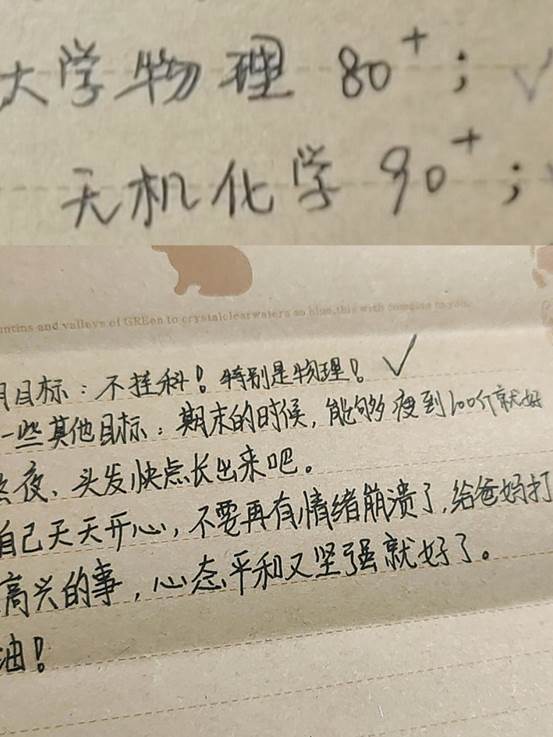 大学物理 80+；
无机化学 90+；
ntins and valleys of GREen to crystalclearwaters so blue,this wish comes to you.
目标：不挂科！特别是物理！
一些其他目标：期末的时候，能够瘦到100斤就好
夜、头发快点长出来吧。
自己天天开心，不要再有情绪崩溃了，给爸妈打
高兴的事，心态平和又坚强就好了。
油！